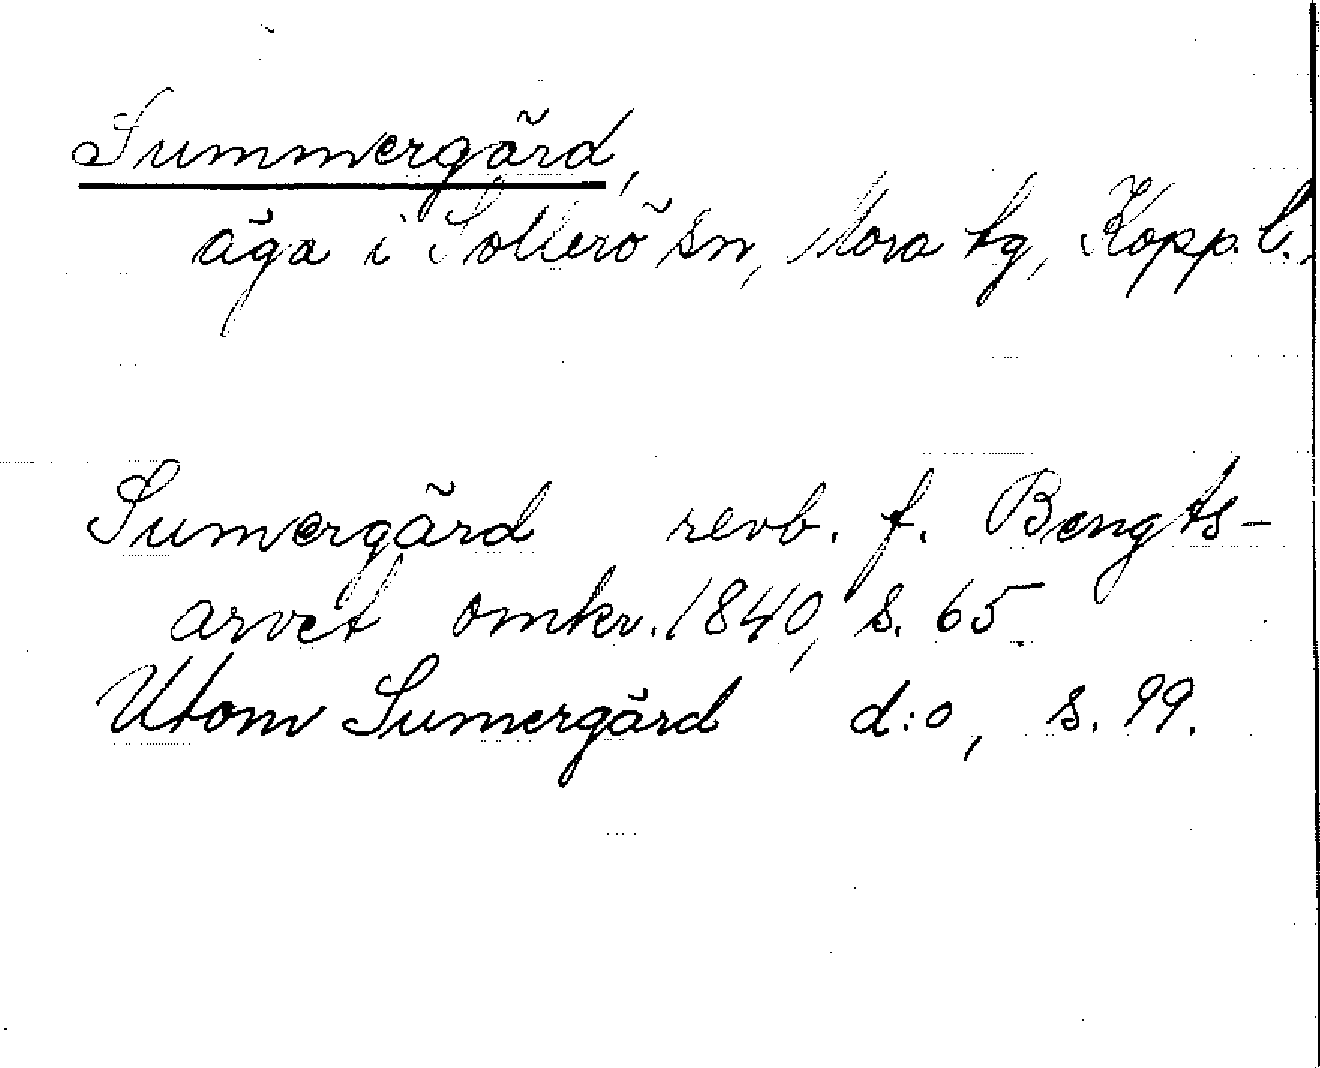 Summergärd,
äga i Sollerö sn, Mora tg, Kopp. l.,
Sumergärd revb. f. Bengts-
arvet omkr. 1840, s. 65.
Utom Sumergärd d:o, s. 99.